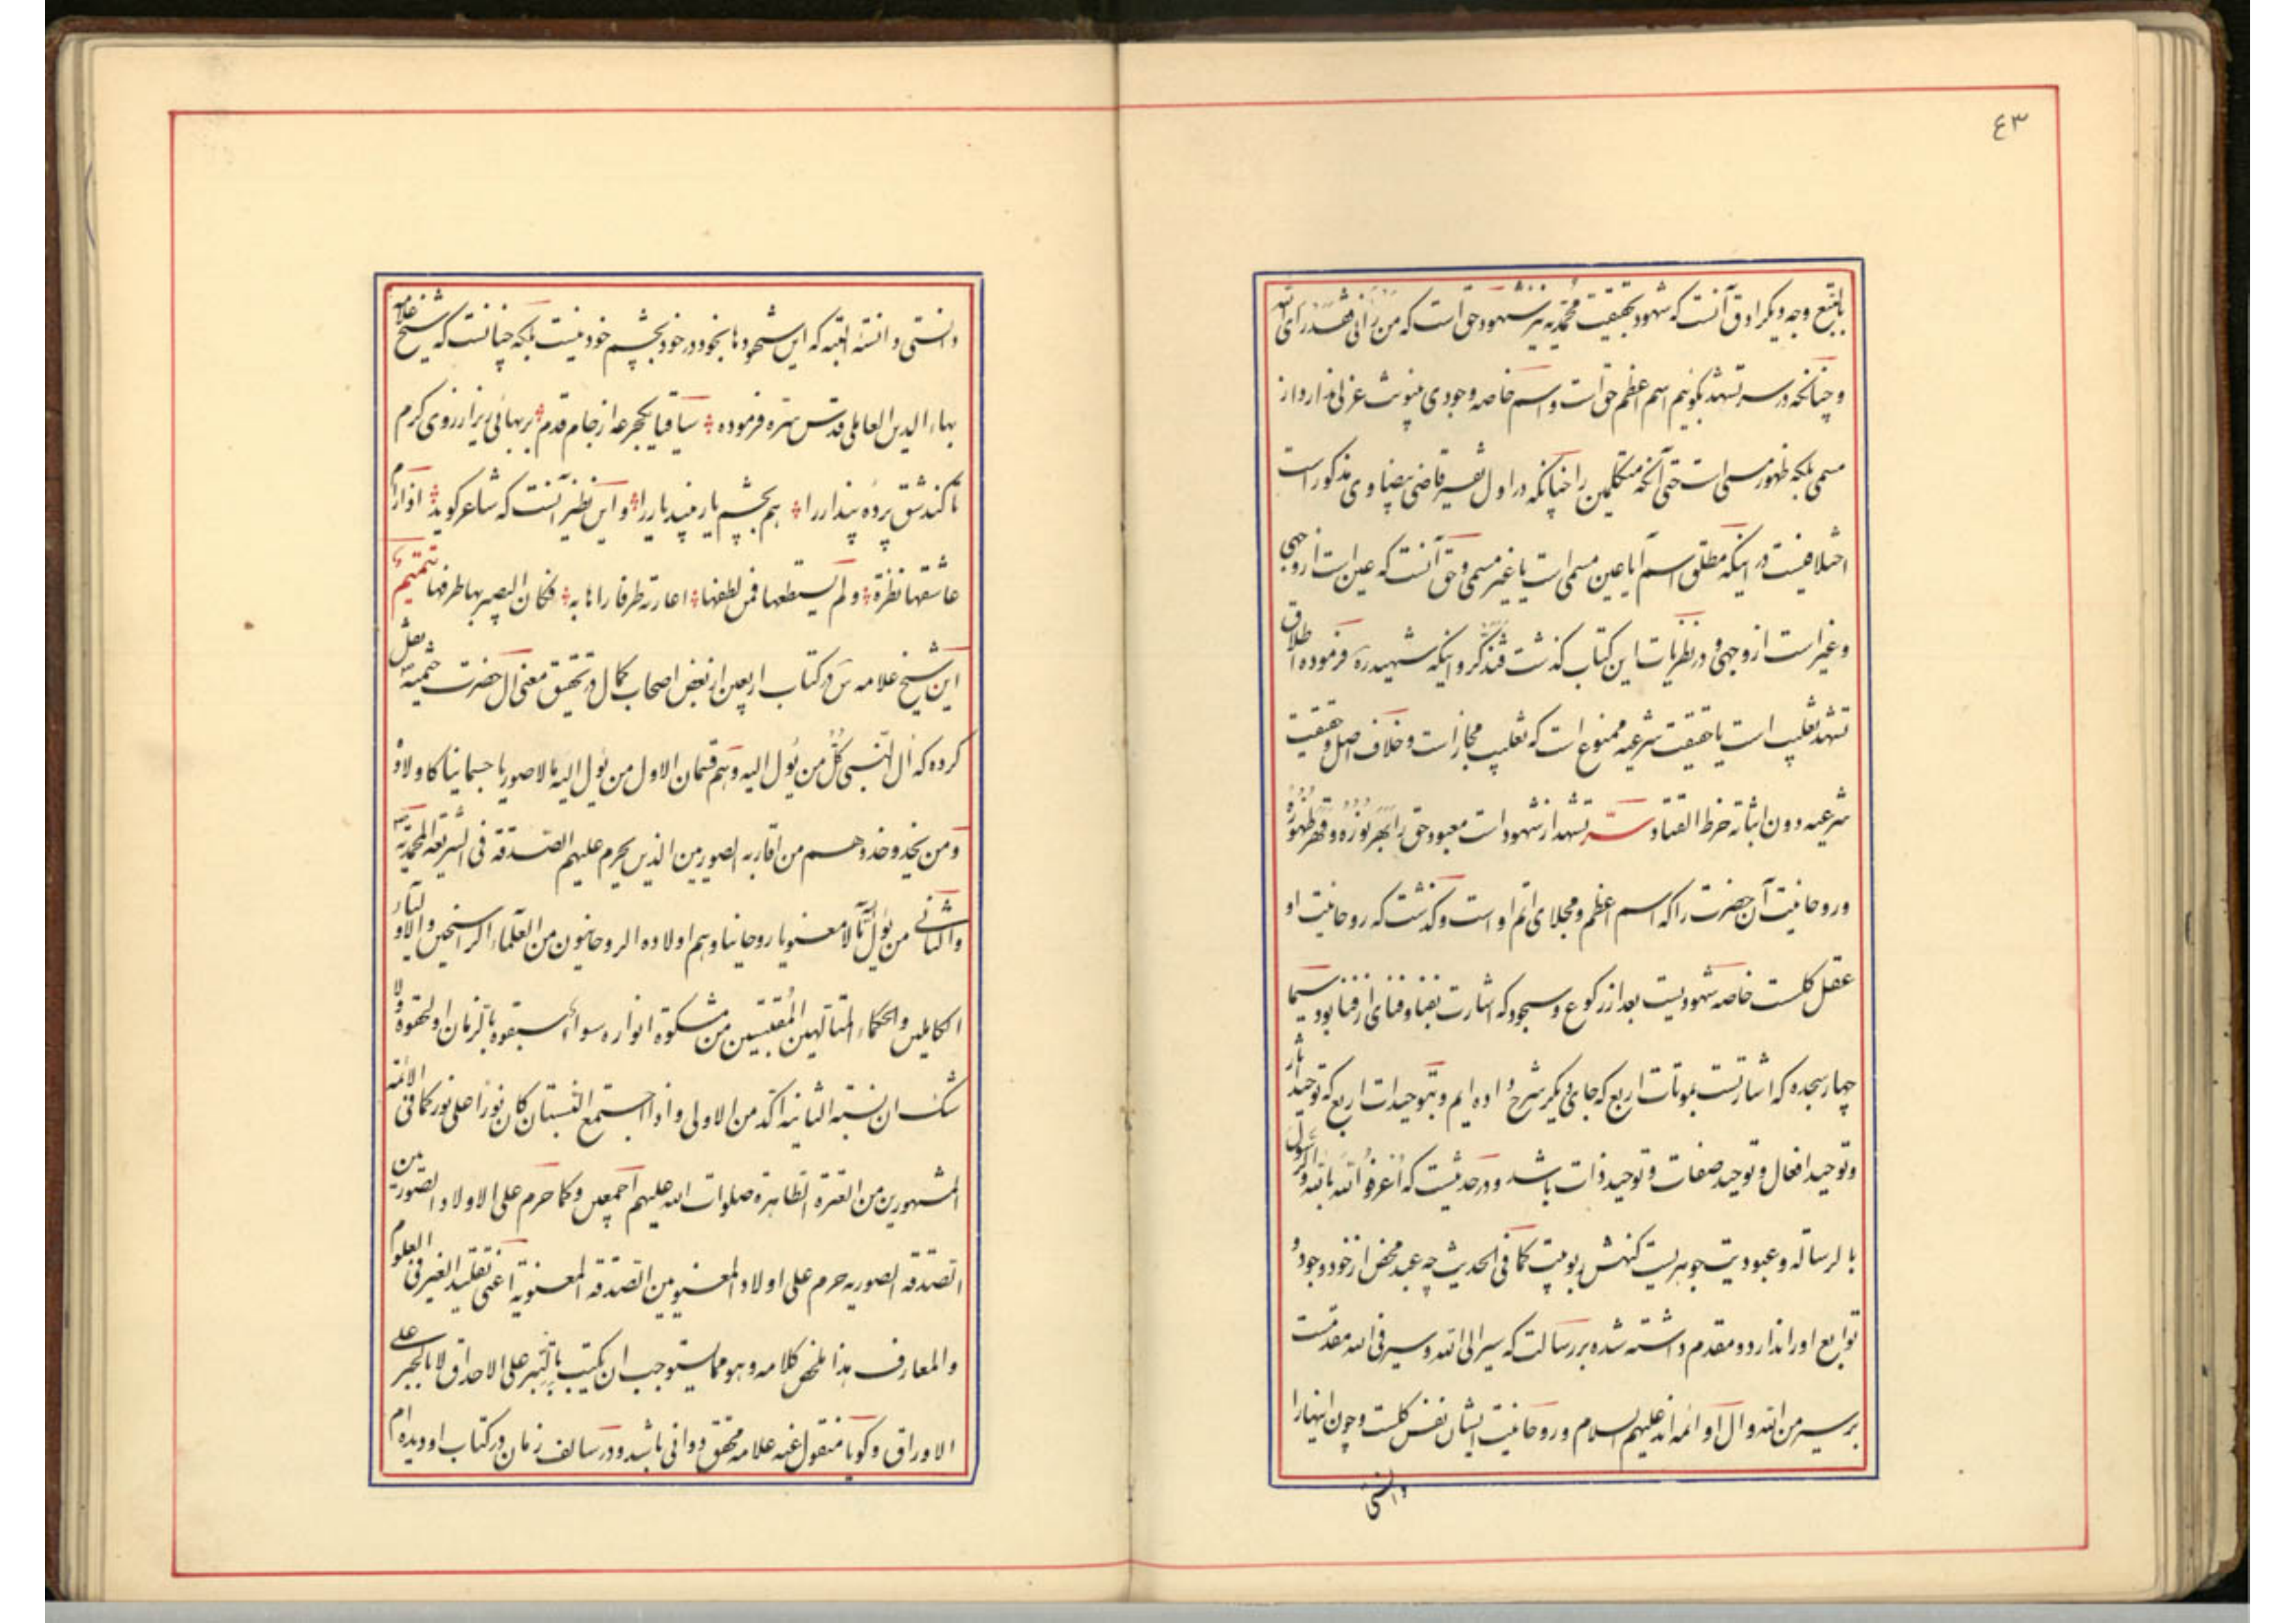 ٤٣
بالتبع وجه دیگر ادق آنست که شهود بحقیقت محمّدیه نیز شهود حق است که من رآنی فقد رای الله
و چنانکه در سر تشهد بگوئیم اسم اعظم حق است و اسم خاصه وجودی بینونت عزلی ندارد از
مسمی بلکه ظهور مسمی است حتی آنکه متکلمین را چنانکه در اول تفسیر قاضی بیضاوی مذکور است
اختلافیست در اینکه مطلق اسم آیا عین مسمی است یا غیر مسمی و حق آنست که عین است از وجهی
و غیر است از وجهی و در نظریات این کتاب گذشت فتذکر و اینکه شهید ره فرموده اطلاق
تشهد تغلیب است یا حقیقت شرعیه ممنوع است که تغلیب مجاز است و خلاف اصل و حقیقت
شرعیه دون اثباته خرط القتاد سرّ تشهد از شهود است معبود حق را بهر نوره و قهر ظهوره
و روحانیت آن حضرت را که اسم اعظم و مجلای اتم اوست و گذشت که روحانیت او
عقل کلست خاصه شهودیست بعد از رکوع و سجود که اشارت بفنا و فنای از فنا بود سیما
چهار سجده که اشارتست بموتات اربع که جای دیگر شرح داده ایم و بتوحیدات اربع که توحید آثار
و توحید افعال و توحید صفات و توحید ذات باشد و در حدیثست که اعرفوا الله بالله و الرسول
بالرساله و عبودیت جوهریست کنهش ربوبیت کما فی الحدیث چه عبد محض از خود وجود و
توابع او را ندارد و مقدم داشته شده بر رسالت که سیر الی الله و سیر فی الله مقدمست
بر سیر من الله و آل او ائمه اند علیهم السلام و روحانیت ایشان نفس کلست و چون اینها را
دانستی
دانستی و دانسته البته که این شهودها بخود در خود بچشم خود نیست بلکه چنانست که شیخ علامه
بهاء الدین العاملی قدس سره فرموده ساقیا یکجرعه از جام قدم بر بهائی ریز از روی کرم
تا کند شق پرده پندار را هم بچشم یار بیند یار را و این نظیر آنست که شاعر گوید اذا رام
عاشقها نظرة و لم یستطعها فمن لطفها اعارته طرفا رآها به فکان البصیر بها طرفها تتمیم
این شیخ علامه س در کتاب اربعین از بعض اصحاب کمال در تحقیق معنی آل حضرت ختمیه ص نقل
کرده که آل النبی کل من یؤل الیه و هم قسمان الاول من یؤل الیه مآلا صوریا جسمانیا کاولاده
و من یحذو حذوهم من اقاربه الصوریین الذین یحرم علیهم الصدقة فی الشریعة المحمدیة
والثانی من یؤل الیه مآلا معنویا روحانیا و هم اولاده الروحانیون من العلماء الراسخین و الاولیاء
الکاملین و الحکماء المتالهین المقتبسین من مشکوة انواره سواء سبقوه بالزمان او لحقوه و لا
شک ان نسبة الثانیة آکد من الاولی و اذا اجتمع النسبتان کان نورا علی نور کما فی الائمه
المشهورین من العترة الطاهرة صلوات الله علیهم اجمعین و کما حرم علی الاولاد الصوریین
الصدقة الصوریه حرم علی اولاد المعنویین الصدقة المعنویة اعنی تقلید الغیر فی العلوم
و المعارف هذا ملخص کلامه و هو مما یستوجب ان یکتب بالتبر علی الاحداق لا بالحبر علی
الاوراق و گویا منقول عنه علامه محقق دوانی باشد و در سالف زمان در کتاب او دیده ام